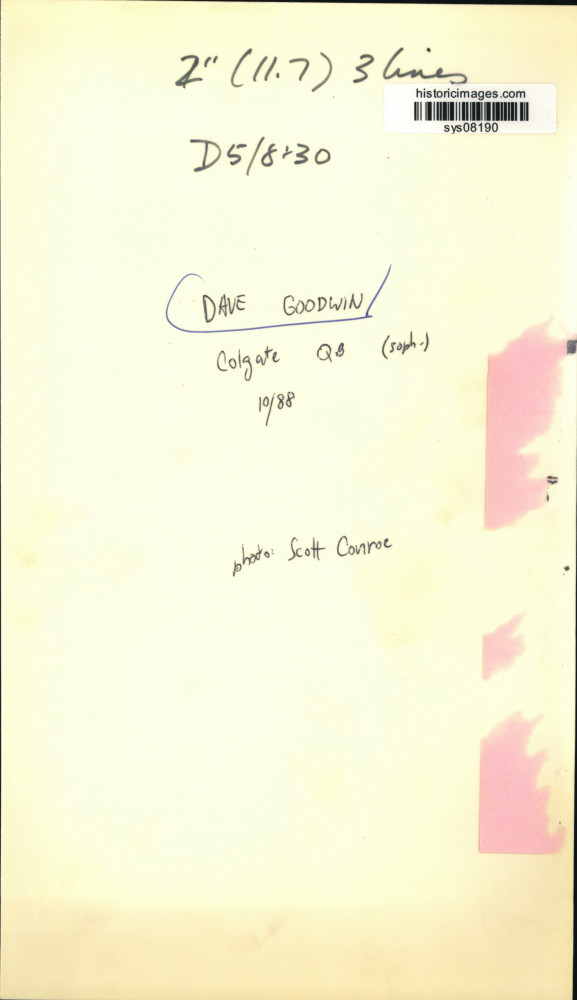 2" (11.7) 3 lines
historicimages.com
sys08190
D5/8+30
DAVE GOODWIN
Colgate QB (soph.)
10/88
photo: Scott Conroe